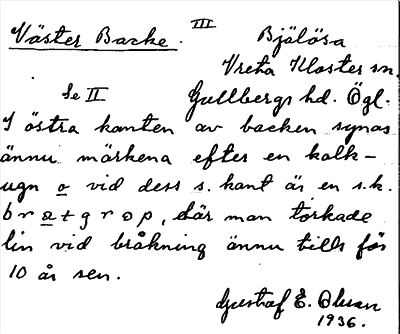 III
Väster Backe. Bjälösa
Vreta Kloster sn.
Se II Gullbergs hd. Ögl.
I östra kanten av backen synas
ännu märkena efter en kalk-
ugn o vid dess s. kant är en s.k.
bratgrop, där man torkade
lin vid bråkning ännu tills för
10 år sen.
Gustaf E. Olsson
1936.